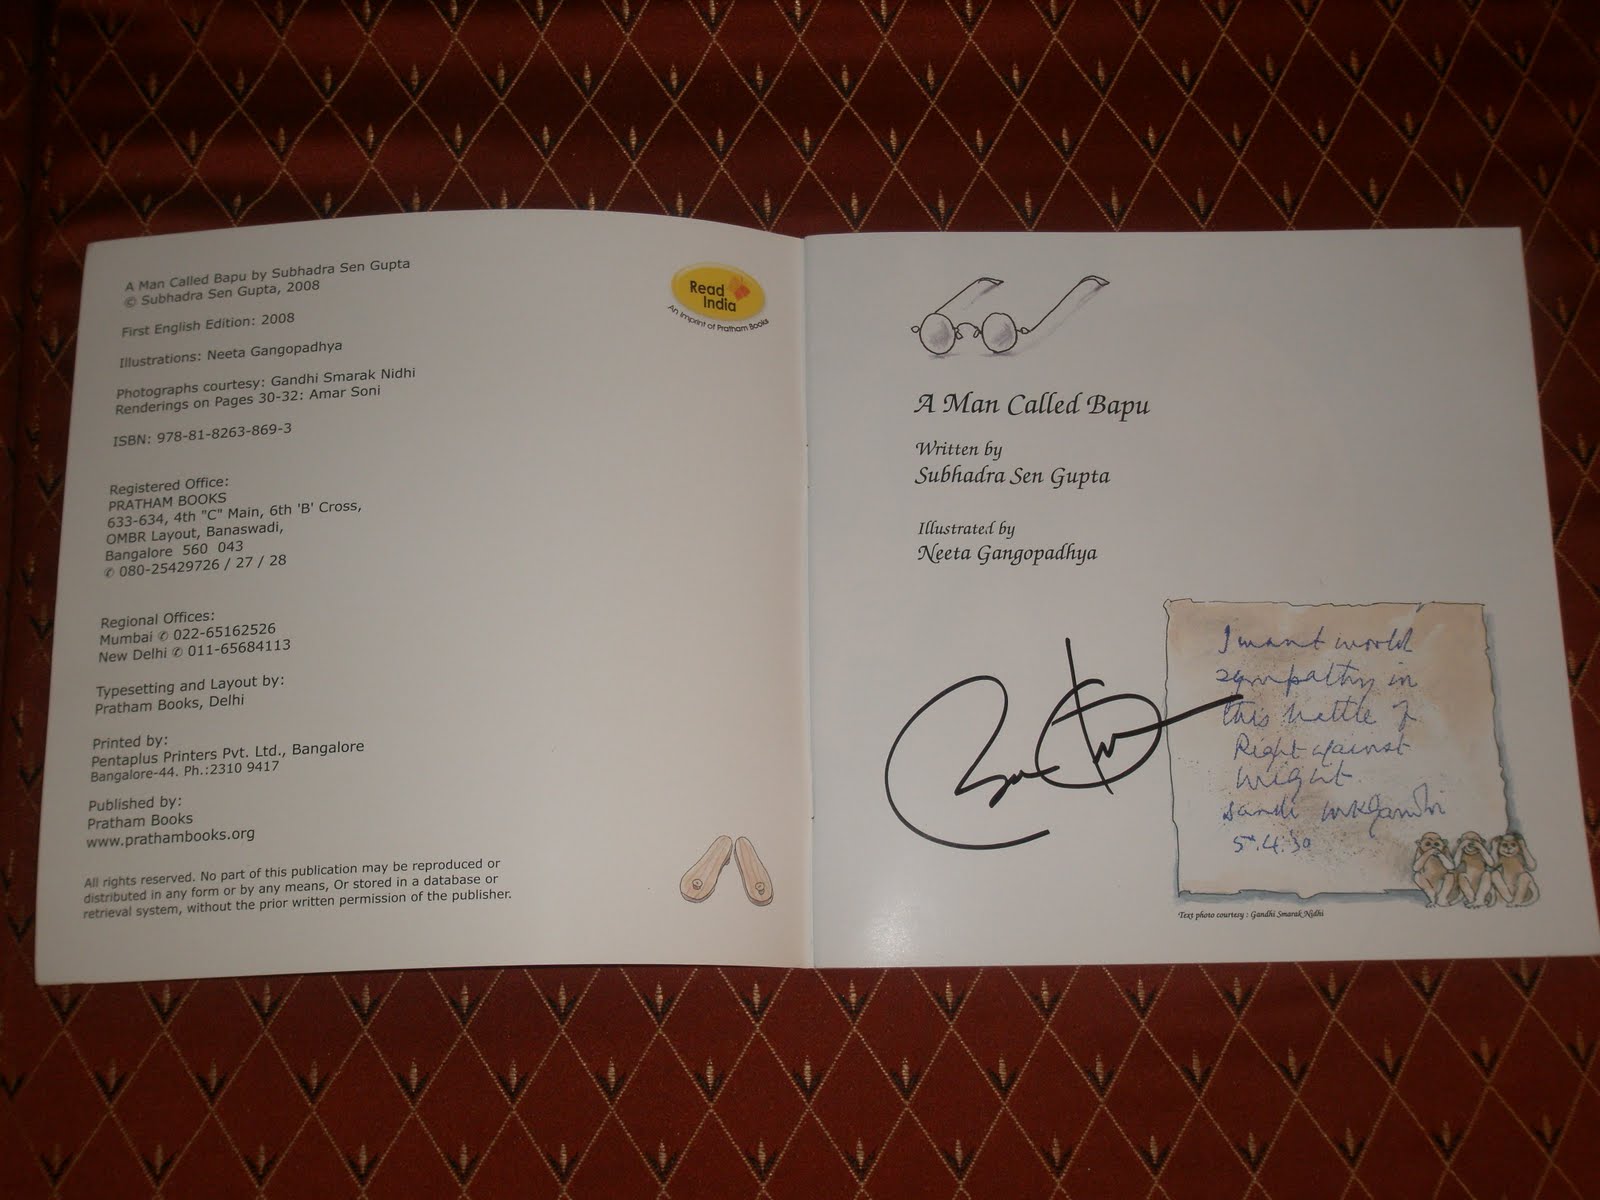 A Man Called Bapu by Subhadra Sen Gupta
© Subhadra Sen Gupta, 2008
First English Edition: 2008
Illustrations: Neeta Gangopadhya
Photographs courtesy: Gandhi Smarak Nidhi
Renderings on Pages 30-32: Amar Soni
ISBN: 978-81-8263-869-3
Registered Office:
PRATHAM BOOKS
633-634, 4th "C" Main, 6th 'B' Cross,
OMBR Layout, Banaswadi,
Bangalore 560 043
✆ 080-25429726 / 27 / 28
Regional Offices:
Mumbai ✆ 022-65162526
New Delhi ✆ 011-65684113
Typesetting and Layout by:
Pratham Books, Delhi
Printed by:
Pentaplus Printers Pvt. Ltd., Bangalore
Bangalore-44. Ph.:2310 9417
Published by:
Pratham Books
www.prathambooks.org
All rights reserved. No part of this publication may be reproduced or
distributed in any form or by any means, Or stored in a database or
retrieval system, without the prior written permission of the publisher.
Read
India
An Imprint of Pratham Books
A Man Called Bapu
Written by
Subhadra Sen Gupta
Illustrated by
Neeta Gangopadhya
I want world
sympathy in
this battle of
Right against
might.
Dandi MKGandhi
5.4.30
Text photo courtesy : Gandhi Smarak Nidhi